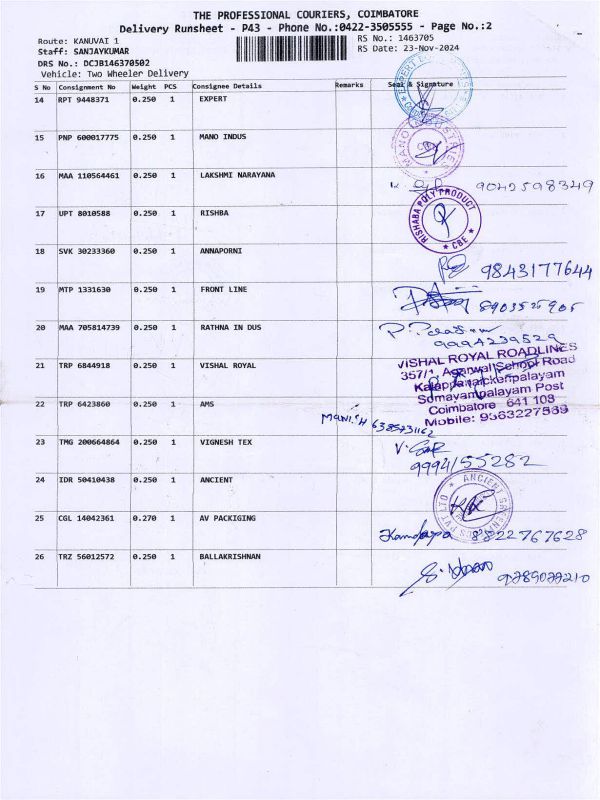 THE PROFESSIONAL COURIERS, COIMBATORE
Delivery Runsheet - P43 - Phone No.:0422-3505555 - Page No.:2
Route: KANUVAI 1
RS No.: 1463705
Staff: SANJAYKUMAR
RS Date: 23-Nov-2024
DRS No.: DCJB146370502
Vehicle: Two Wheeler Delivery
S No Consignment No Weight PCS Consignee Details Remarks Seal & Signature
14 RPT 9448371 0.250 1 EXPERT
EXPERT
15 PNP 600017775 0.250 1 MANO INDUS
MANO INDUSTRIES
16 MAA 110564461 0.250 1 LAKSHMI NARAYANA
9042598349
17 UPT 8010588 0.250 1 RISHBA
RISHABA POLY PRODUCT
★ CBE ★
18 SVK 30233360 0.250 1 ANNAPORNI
9843177644
19 MTP 1331630 0.250 1 FRONT LINE
20 MAA 705814739 0.250 1 RATHNA IN DUS
9994239529
21 TRP 6844918 0.250 1 VISHAL ROYAL
VISHAL ROYAL ROADLINES
357/1, Agarwal School Road
Kalappanaickenpalayam
Somayampalayam Post
Coimbatore 641 108
Mobile: 9363227569
22 TRP 6423860 0.250 1 AMS
23 TMG 200664864 0.250 1 VIGNESH TEX
9994155282
24 IDR 50410438 0.250 1 ANCIENT
ANCIENT GREENS PVT LTD
25 CGL 14042361 0.270 1 AV PACKIGING
8822767628
26 TRZ 56012572 0.250 1 BALLAKRISHNAN